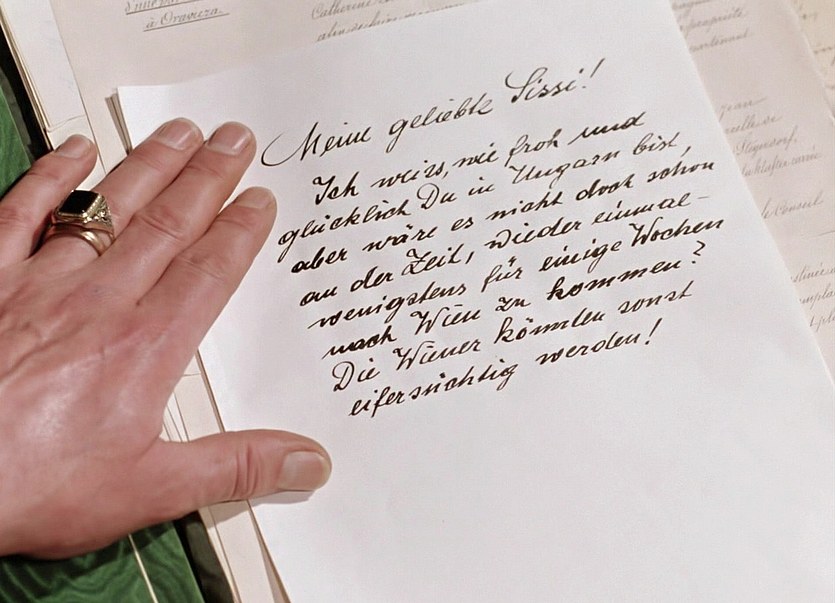 à Oravicza.
Catherine
Meine geliebte Sissi!
Ich weiss, wie froh und
glücklich Du in Ungarn bist,
aber wäre es nicht doch schon
an der Zeit, wieder einmal-
wenigstens für einige Wochen
nach Wien zu kommen?
Die Wiener könnten sonst
eifersüchtig werden!